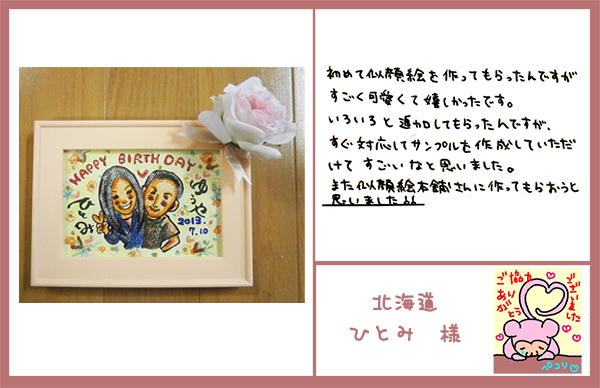 HAPPY BIRTHDAY
ひとみ
ゆうや
2013.
7.10
初めて似顔絵を作ってもらったんですが
すごく可愛くて嬉しかったです。
いろいろと追加してもらったんですが、
すぐ対応してサンプルを作成していただ
けて すごいなと思いました。
また似顔絵本舗さんに作ってもらおうと
思いました
北海道
ひとみ 様
ご協力
ありがとう
ございました
ペコリ